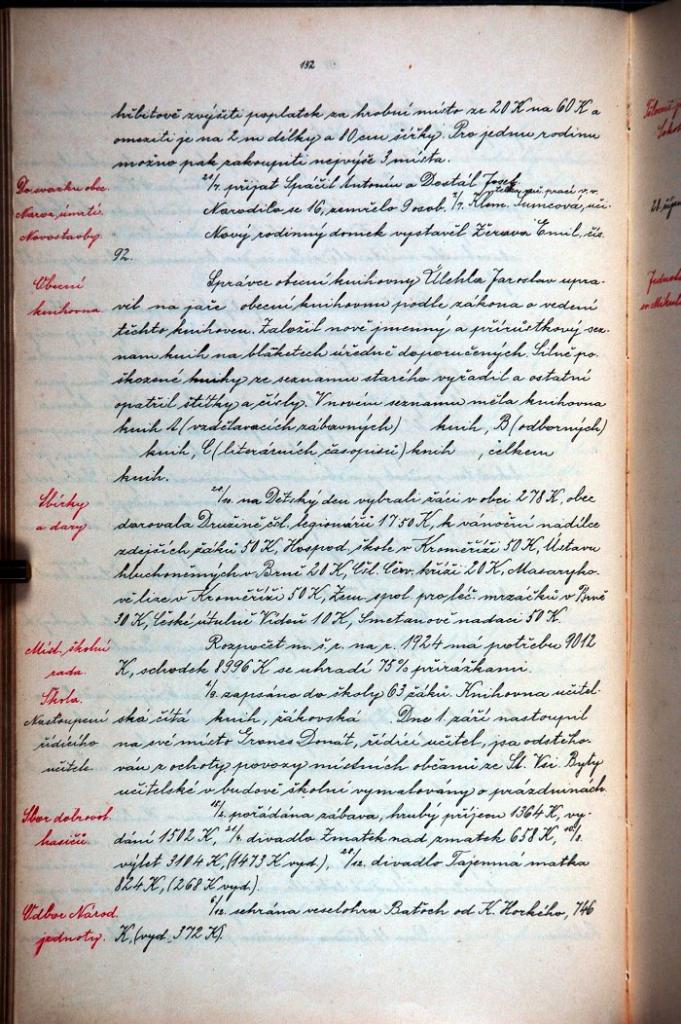 192
hřbitově zvýšiti poplatek za hrobní místo ze 20 K na 60 K a
omeziti je na 2 m délky a 80 cm šířky. Pro jednu rodinu
možno pak zakoupiti nejvýše 3 místa.
Do svazku obec.
přijat Spáčil Antonín a Dostál Josef
Naroz. úmrtí.
Narodilo se 16, zemřelo 9 osob. Klem. Šumcová, uči-
telka zač. prací v. v.
Novostavby
Nový rodinný domek vystavěl Žerava Emil, čís.
92.
Obecní
knihovna
Správce obecní knihovny Úlehla Jaroslav upra-
vil na jaře obecní knihovnu podle zákona o vedení
těchto knihoven. Založil nově jmenný a přírůstkový sez-
nam knih na blaketech úředně doporučených. Silně po-
škozené knihy ze seznamu starého vyřadil a ostatní
opatřil štítky a čísly. V novém seznamu měla knihovna
knih A (vzdělavacích zábavných) knih, B (odborných)
knih, C (literárních, časopisů) knih , celkem
knih.
Sbírky
a dary
na Dětský den vybrali žáci v obci 278 K, obec
darovala Družině čsl. legionářů 17.50 K, k vánoční nadílce
zdejších žáků 50 K, Hospod. škole v Kroměříži 50 K, Ústavu
hluchoněmých v Brně 20 K, Čsl. Červ. kříži 20 K, Masaryko-
vě lize v Kroměříži 50 K, Zem. spol. pro léč. mrzáčků v Brně
30 K, České útulně Vídni 10 K, Smetanově nadaci 50 K.
Míst. školní
rada.
Rozpočet m. š. r. na r. 1924 má potřebu 9012
K, schodek 8996 K se uhradí 75% přirážkami.
Škola.
1/9. zapsáno do školy 63 žáků. Knihovna učitel-
Nastoupení
řídícího
učitele
ská čítá knih, žákovská Dne 1. září nastoupil
na své místo Grones Donát, řídící učitel, jsa odstěho-
ván z ochoty povozy místních občanů ze St. Vsi. Byty
učitelské v budově školní vymalovány o prázdninách.
Sbor dobrovol.
hasičů
pořádána zábava, hrubý příjem 1364 K, vy-
dání 1502 K, divadlo Zmatek nad zmatek 658 K,
výlet 3104 K, (1473 K vyd.), divadlo Tajemná matka
824 K, (268 K vyd.).
Odbor Národ.
jednoty.
sehrána veselohra Baťoch od K. Horkého, 746
K, (vyd. 372 K).